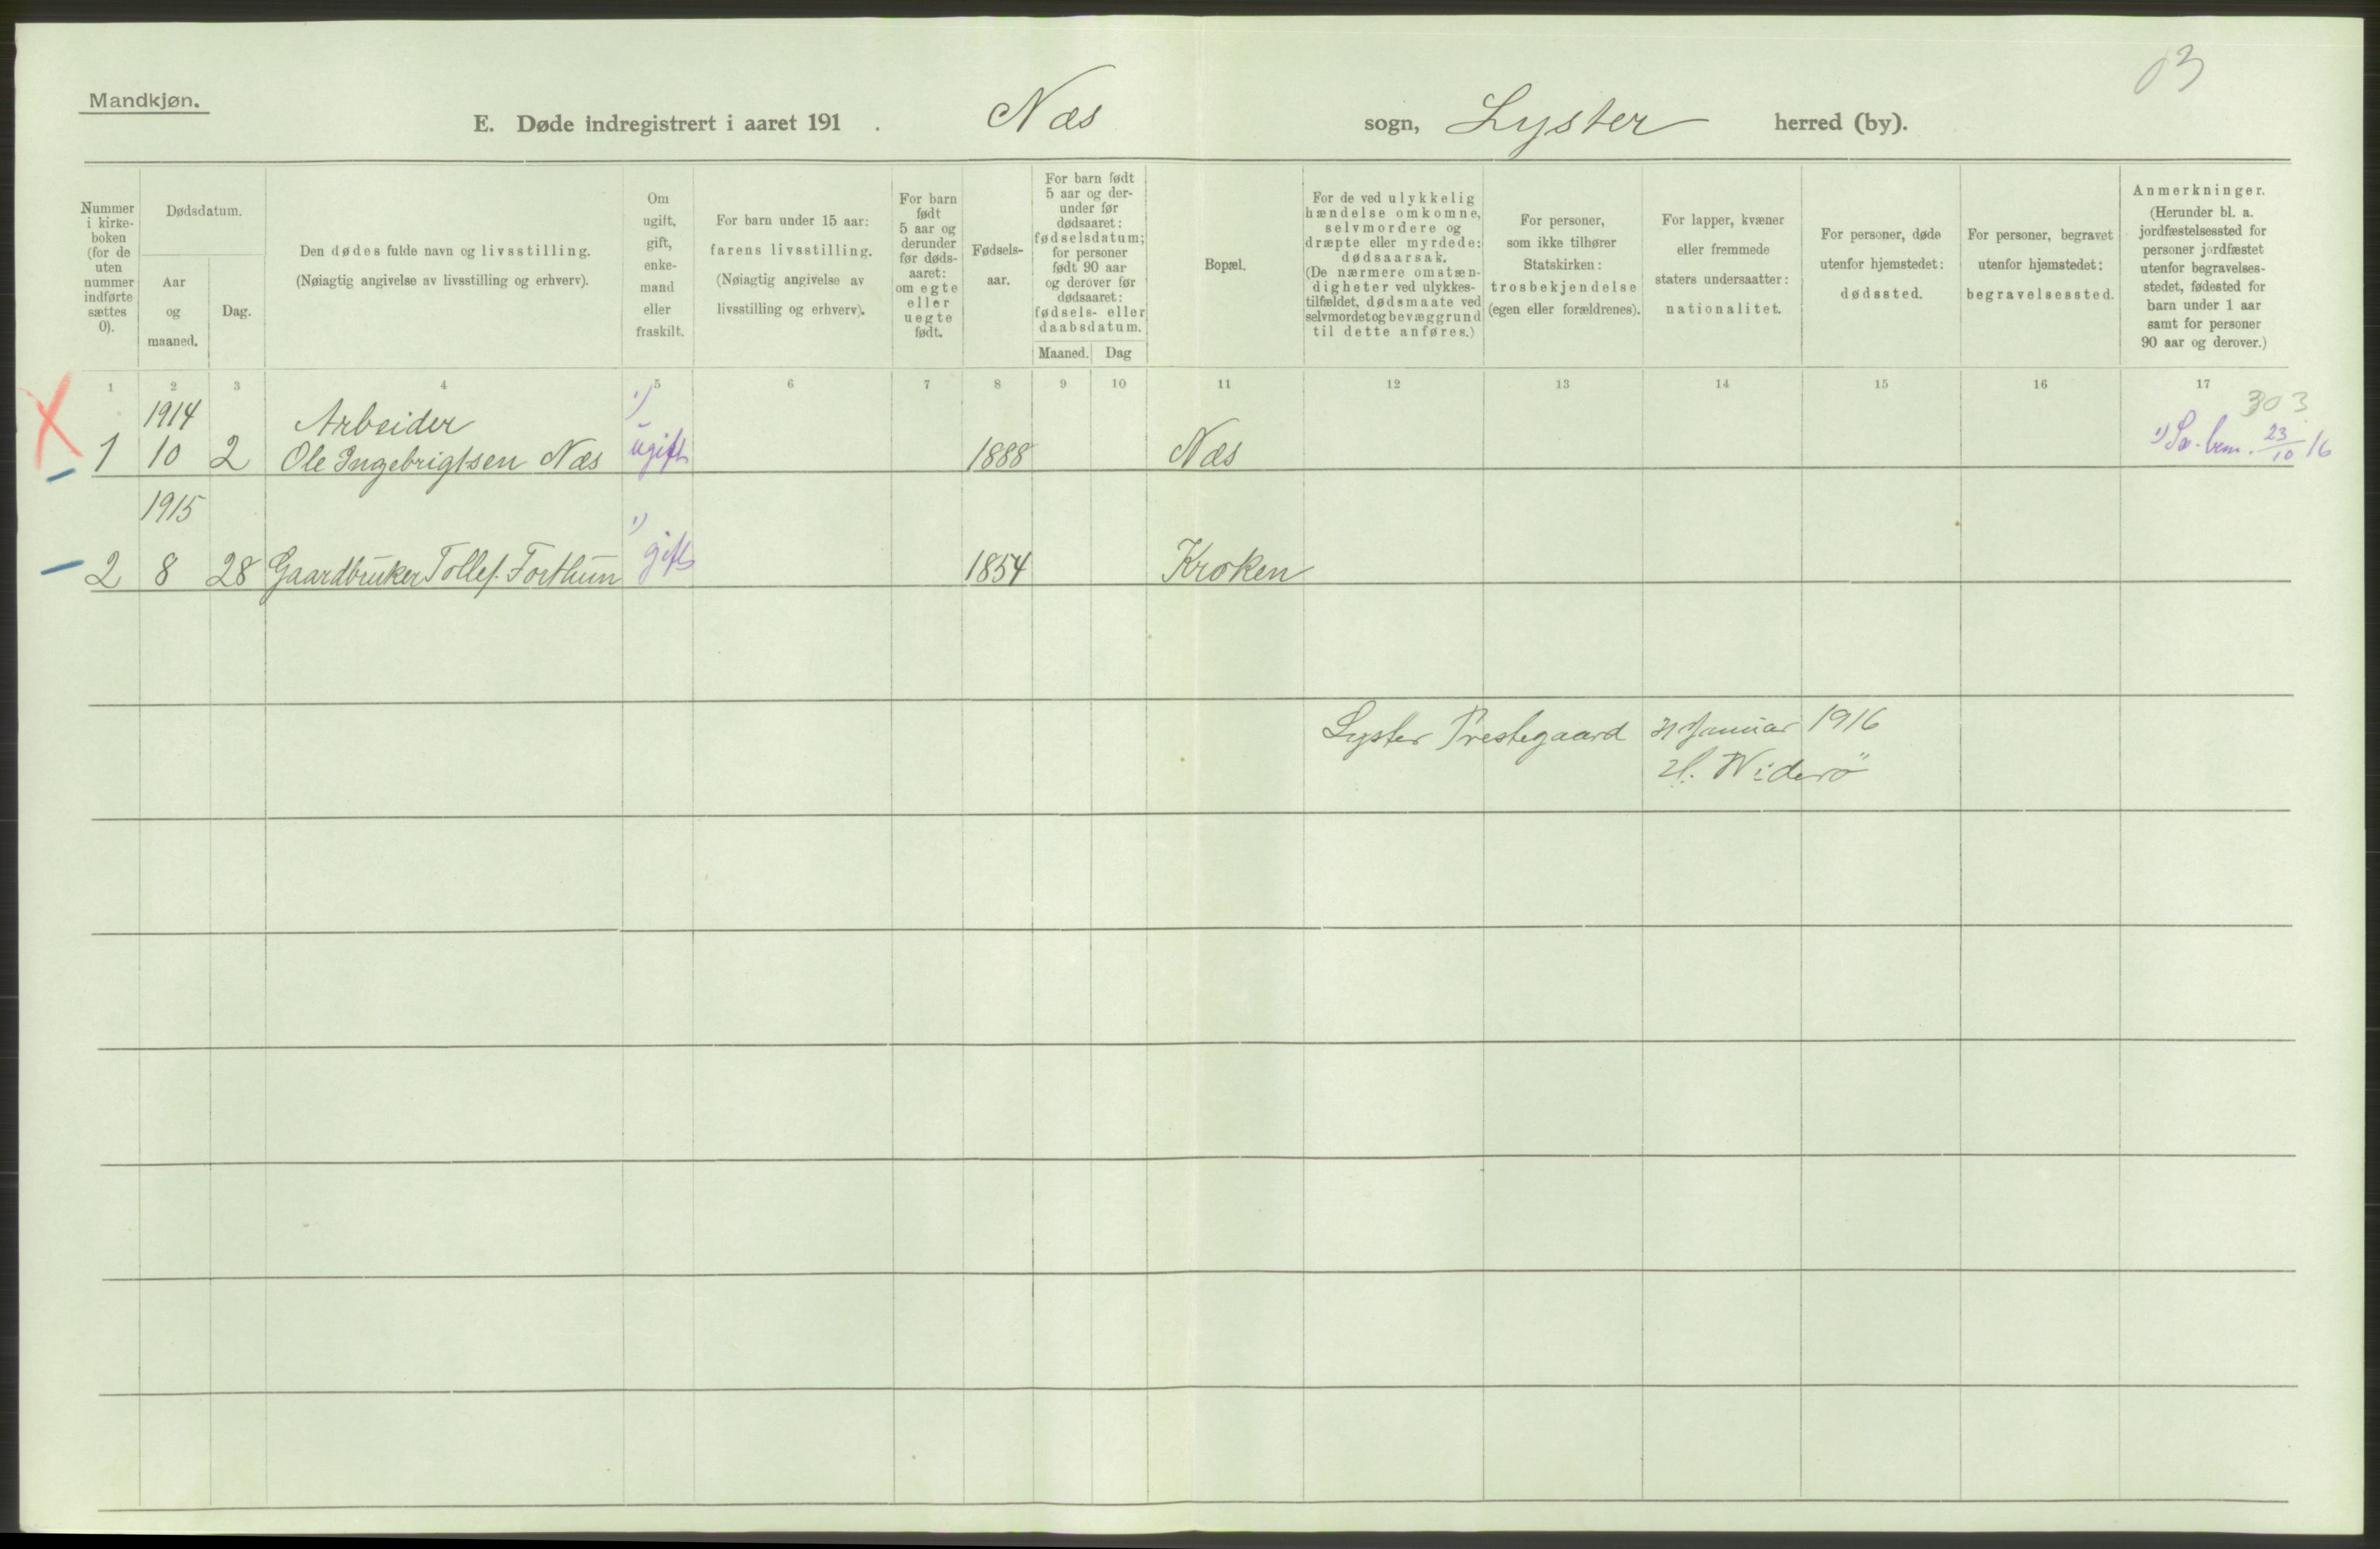 03
Mandkjøn.
E. Døde indregistrert i aaret 191 . Næs sogn, Lyster herred (by).
Nummer i kirke-boken (for de uten nummer indførte sættes 0).
Dødsdatum.
Aar og maaned.
Dag.
Den dødes fulde navn og livsstilling.
(Nøiagtig angivelse av livsstilling og erhverv).
Om ugift, gift, enke-mand eller fraskilt.
For barn under 15 aar:
farens livsstilling.
(Nøiagtig angivelse av
livsstilling og erhverv).
For barn født 5 aar og derunder før døds-aaret: om egte eller uegte født.
Fødsels-aar.
For barn født 5 aar og der-under før dødsaaret: fødselsdatum; for personer født 90 aar og derover før dødsaaret: fødsels- eller daabsdatum.
Maaned. Dag
Bopæl.
For de ved ulykkelig hændelse omkomne, selvmordere og dræpte eller myrdede: dødsaarsak. (De nærmere omstæn-digheter ved ulykkes-tilfældet, dødsmaate ved selvmordet og bevæggrund til dette anføres.)
For personer, som ikke tilhører Statskirken: trosbekjendelse (egen eller forældrenes).
For lapper, kvæner eller fremmede staters undersaatter: nationalitet.
For personer, døde utenfor hjemstedet: dødssted.
For personer, begravet utenfor hjemstedet: begravelsessted.
Anmerkninger.
(Herunder bl. a. jordfæstelsessted for personer jordfæstet utenfor begravelses-stedet, fødested for barn under 1 aar samt for personer 90 aar og derover.)
1 2 3 4 5 6 7 8 9 10 11 12 13 14 15 16 17
303
1914 Arbeider 1)
1 10 2 Ole Ingebrigtsen Næs ugift 1888 Næs 1) 23/10 16
1915 1)
2 8 28 Gaardbruker Tollef. Forthun gift 1854 Kroken
Lyster Prestegaard 31 Januar 1916
H. Widerö